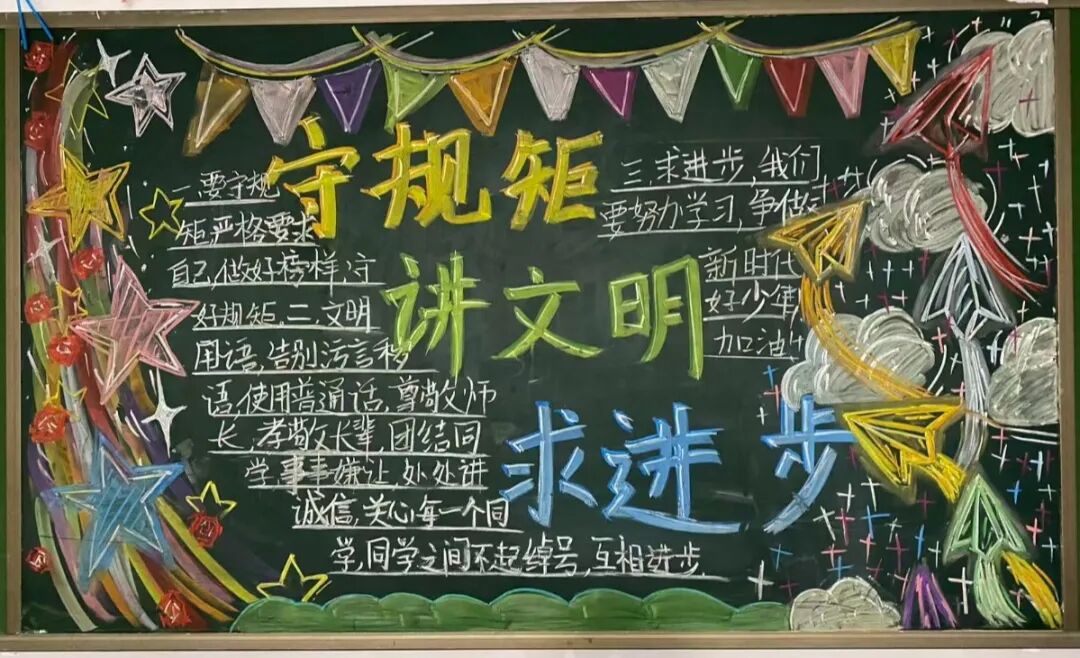 守规矩
讲文明
求进步
一要守规
矩严格要求
自己,做好榜样,守
好规矩,二,文明
用语,告别污言秽
语,使用普通话,尊敬师
长,孝敬长辈,团结同
学,事事嫌让,处处讲
诚信,关心每一个同
学,同学之间不起绰号,互相进步.
三,求进步,我们
要努力学习,争做
新时代
好少年,
加油!